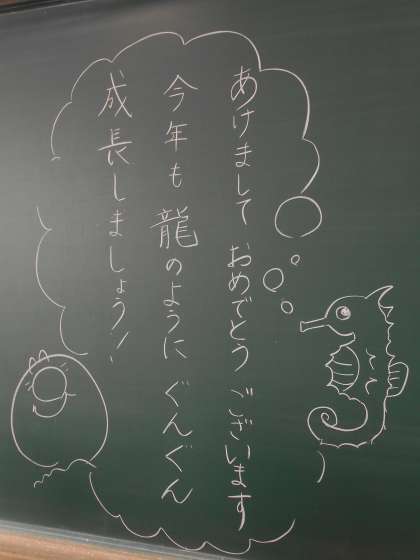 あけまして おめでとう ございます
今年も 龍のように ぐんぐん
成長しましょう!